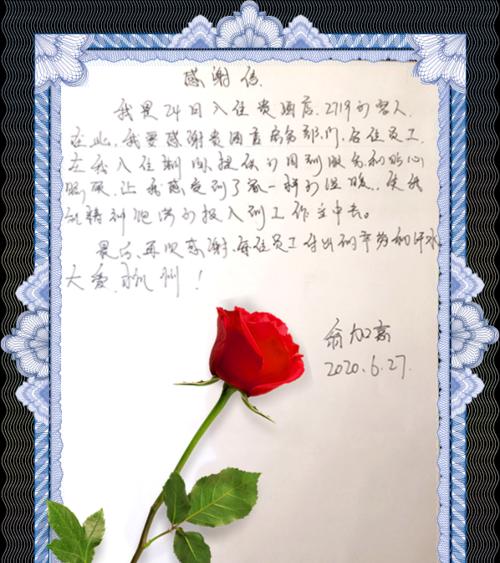 感谢信
我是24日入住贵酒店，2719的客人，
在此，我要感谢贵酒店商务部门，各位员工，
在我入住期间提供的周到服务和贴心
照顾，让我感受到了家一样的温暖，使我
能精神饱满的投入到工作之中去。
最后，再次感谢，每位员工付出的辛劳和汗水
大爱，杭州！
2020.6.27.